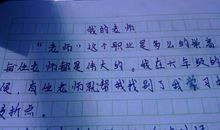 我的老师
“老师”这个职业是多么的崇高
每位老师都是伟大的。我在六年级的
候,有位老师就帮我找到了我学习
转折点。